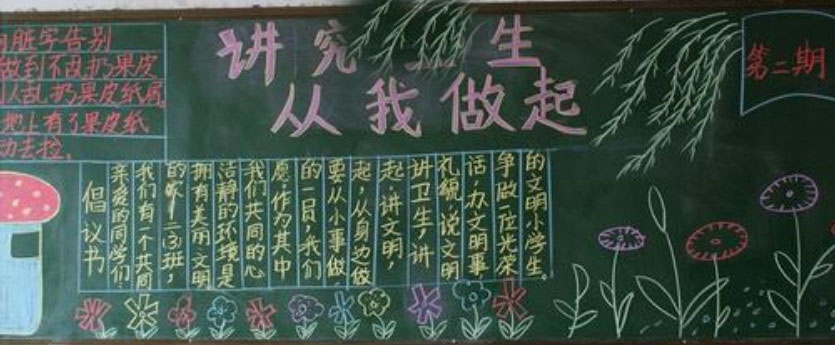 讲究卫生
从我做起
第二期
脏字告别
做到不乱扔果皮
人乱扔果皮纸屑
地上有了果皮纸
动去捡.
倡议书
亲爱的同学们:
我们有一个共同
的家二(3)班,
拥有美丽、文明
洁静的环境是
我们共同的心
愿,作为其中
的一员,我们
要从小事做
起,从身边做
起.讲文明,
讲卫生,讲
礼貌,说文明
话,办文明事
争做一位光荣
的文明小学生。